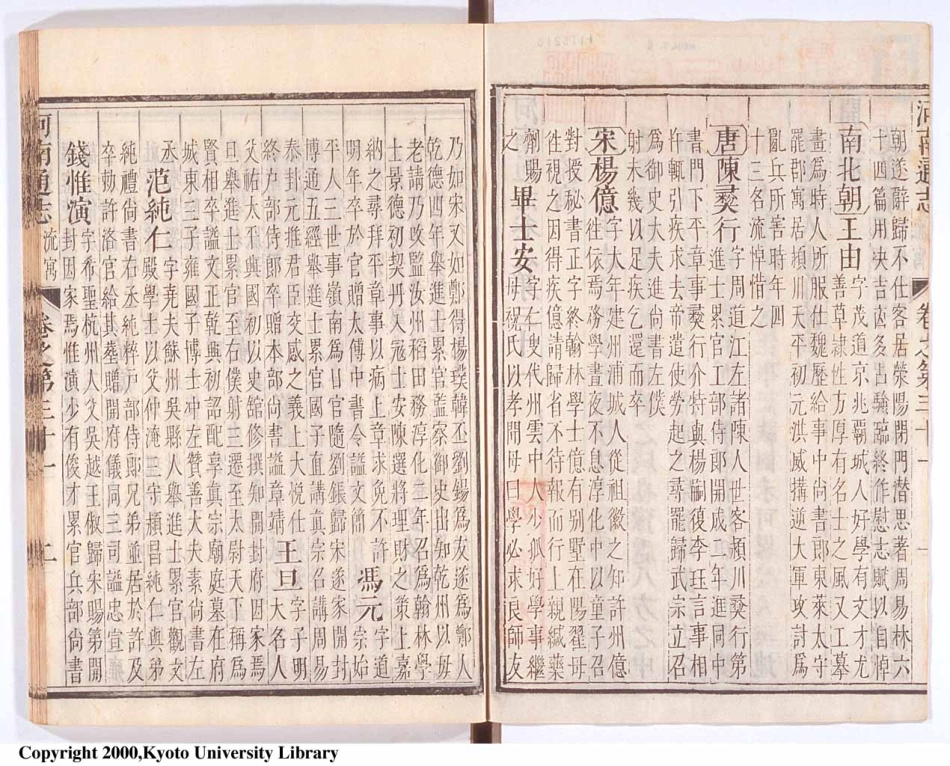 河南通志 卷之第三十一 一
朝遂辭歸不仕客居滎陽閉門潛思著周易林六
十四篇用决吉凶多占驗臨終作慰志賦以自悼
南北朝 王由 字茂道京兆霸城人好學有文才尤
善草隸性方厚有名士之風又工摹
畫為時人所服仕魏歷給事中尚書郎東萊太守
罷郡寓居潁川天平初元洪威搆逆大軍攻討為
亂兵所害時年四
十三名流悼惜之
唐 陳夷行 字周道江左諸陳人世客潁川夷行第
進士累官工部侍郎開成二年進同中
書門下平章事夷行介特與楊嗣復李珏言事相
忤輒引疾求去帝遣使勞起之尋罷歸武宗立召
為御史大夫進尚書左僕
射未幾以足疾乞還而卒
宋 楊億 字大年建州浦城人從祖徽之知許州億
往依焉務學晝夜不息淳化中以童子召
對授秘書正字終翰林學士億有别墅在陽翟母
往視之因得疾億請歸省不待報而行上親緘藥
劑賜
之 畢士安 字仁叟代州雲中人少孤好學事繼
母祝氏以孝聞母曰學必求良師友
乃如宋又如鄭得楊璞韓丕劉錫為友遂為鄭人
乾德四年舉進士累官監察御史出知乾州以母
老請乃改監汝州稻田務淳化二年召為翰林學
士景德初契丹入寇士安陳選將理財之策上嘉
納之尋拜平章事以病上章求免不許
明年卒於官贈太傅中書令諡文簡 馮元 字道宗始
平人三世事嶺南為日官隨劉鋹歸宋遂家開封
博通五經舉進士累官國子直講真宗召講周易
泰封元推君臣交感之義上大悅仕
終戶部侍郎卒贈本部尚書諡章靖 王旦 字子明大名人
父祐太平興國初以史舘修撰知開封府因家焉
旦舉進士累官右僕射三遷至太尉天下稱為
賢相卒諡文正乾興初詔配享真宗廟庭墓在府
城東三子雍國子博士冲左贊善大夫素尚書左
丞 范純仁 字堯夫蘇州吳縣人舉進士累官觀文
殿學士以父仲淹三守潁昌純仁與弟
純禮尚書右丞純粹戶部侍郎兄弟並居於許及
卒勑許洛官給其葬贈開府儀同三司諡忠宣
錢惟演 字希聖杭州人父吳越王俶歸宋賜第開
封因家焉惟演少有俊才累官兵部尚書
河南通志 流寓 卷之第三十一 二
Copyright 2000,Kyoto University Library